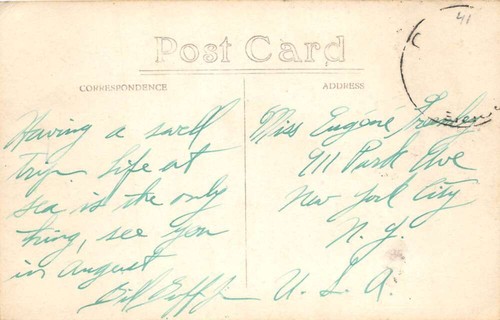 41
Post Card
CORRESPONDENCE
ADDRESS
Having a swell
trip. Life at
sea is the only
thing, see you
in august
Bill
Miss Eugénie
911 Park Ave
New York City
N.Y.
U.S.A.